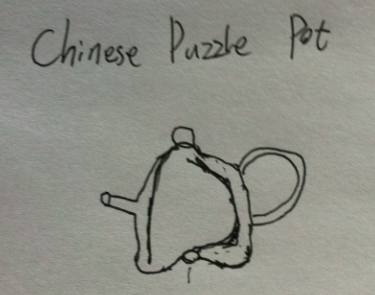 Chinese Puzzle Pot